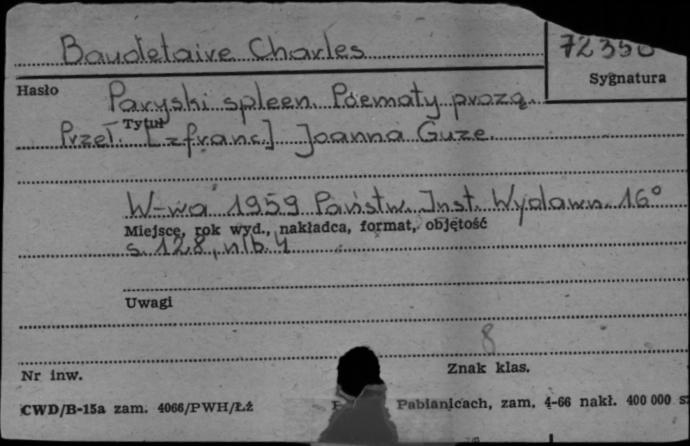 Baudelaire Charles
Sygnatura
Hasło
Paryski spleen. Poematy prozą.
Tytuł
Przeł. [z franc.] Joanna Guze.
W-wa 1959 Państw. Inst. Wydawn. 16°
Miejsce, rok wyd., nakładca, format, objętość
s. 128, nlb. 4
Uwagi
8
Nr inw.
Znak klas.
CWD/B-15a zam. 4066/PWH/Łż Pabianicach, zam. 4-66 nakł. 400 000